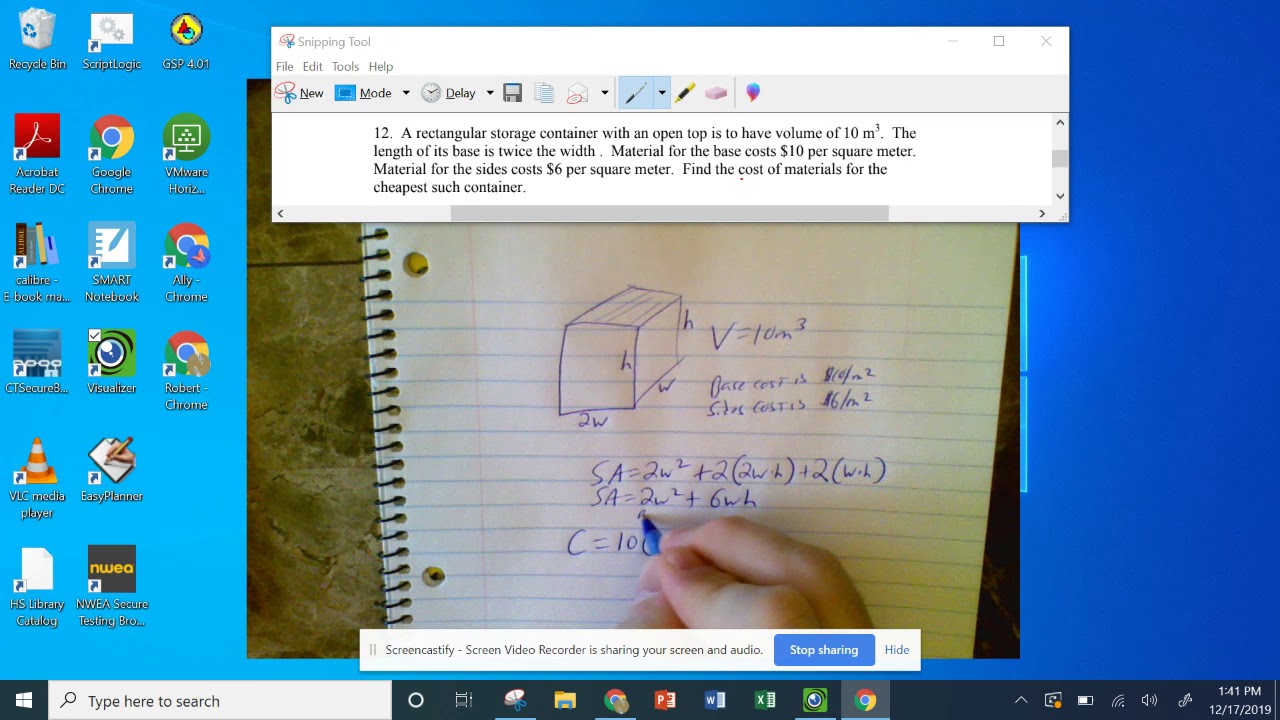 Recycle Bin
ScriptLogic
GSP 4.01
Acrobat
Reader DC
Google
Chrome
VMware
Horiz...
calibre -
E-book ma...
SMART
Notebook
Ally -
Chrome
CTSecureB...
Visualizer
Robert -
Chrome
VLC media
player
EasyPlanner
HS Library
Catalog
nwea
NWEA Secure
Testing Bro...
Snipping Tool
File Edit Tools Help
New Mode Delay
12. A rectangular storage container with an open top is to have volume of 10 m³. The
length of its base is twice the width . Material for the base costs $10 per square meter.
Material for the sides costs $6 per square meter. Find the cost of materials for the
cheapest such container.
h
h
w
2w
V=10m³
Base cost is $10/m²
Sides cost is $6/m²
SA=2w²+2(2w·h)+2(w·h)
SA=2w²+6wh
C=10(
Screencastify - Screen Video Recorder is sharing your screen and audio.
Stop sharing
Hide
Type here to search
1:41 PM
12/17/2019